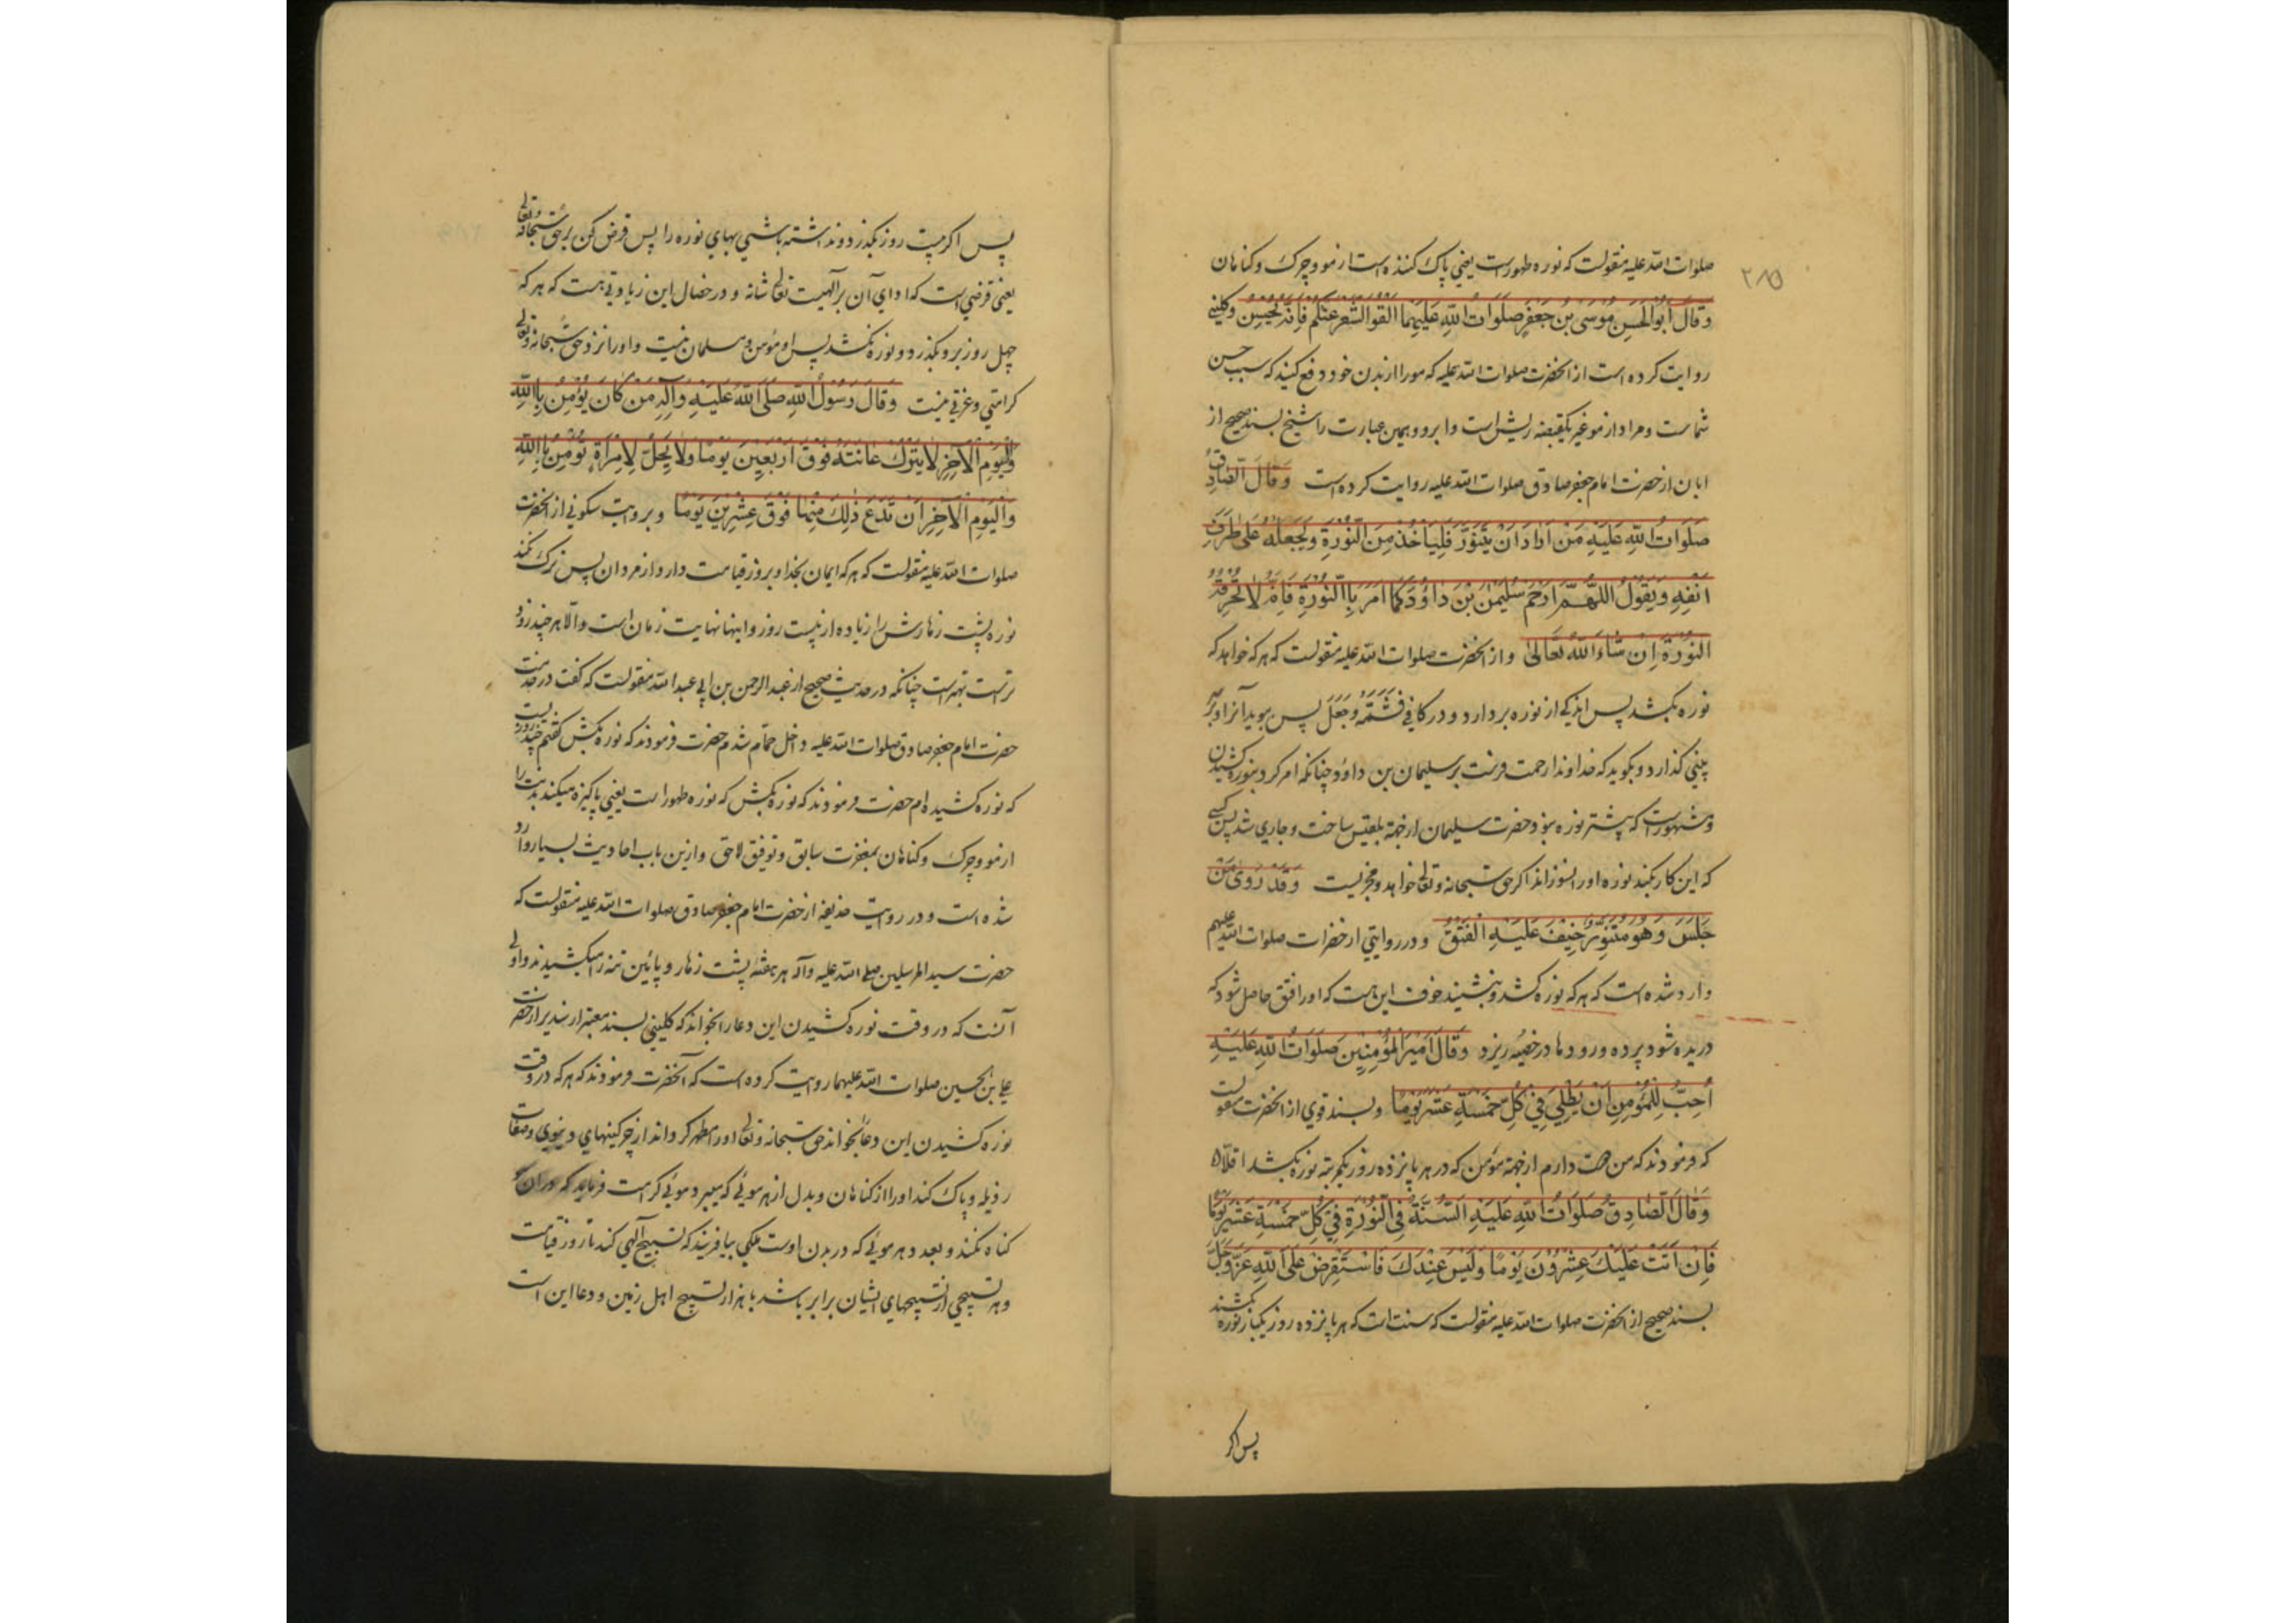 ۲۸۵
صلوات الله علیه منقولست که نوره طهور است یعنی پاک کننده است از مو و چرک و کناهان
وَقَالَ اَبُو الْحَسَنِ مُوسَى بْنُ جَعْفَرٍ صَلَوَاتُ اللهِ عَلَيْهِمَا اَلْقُوا الشَّعْرَ عَنْكُمْ فَاِنَّهُ يُحْسِنُ و کلینی
روایت کرده است از انحضرت صلوات الله علیه که مو را از بدن خود دفع کنید که سبب حسن
شماست و مراد از مو غیر یکقبضه ریش است و ابرو و همین عبارت را شیخ بسند صحیح از
ابان از حضرت امام جعفر صادق صلوات الله علیه روایت کرده است وَقَالَ الصَّادِقُ
صَلَوَاتُ اللهِ عَلَيْهِ مَنْ اَرَادَ اَنْ يَتَنَوَّرَ فَلْيَاْخُذْ مِنَ النُّورَةِ وَيَجْعَلْهُ عَلَى طَرَفِ
اَنْفِهِ وَيَقُولُ اللّٰهُمَّ ارْحَمْ سُلَيْمٰنَ بْنَ دَاوُدَ كَمَا اَمَرَ بِالنُّورَةِ فَاِنَّهُ لَا تُحْرِقُهُ
النُّورَةُ اِنْ شَاءَ اللهُ تَعَالٰى و از انحضرت صلوات الله علیه منقولست که هر که خواهد که
نوره بکشد پس اندکی از نوره بردارد و در کافی فَشَمَّهُ وَجَعَلَ پس ببوید آنرا و بر سر
بینی کذارد و بکوید که خداوندا رحمت فرست بر سلیمان بن داود چنانکه امر کرد بنوره کشیدن
و مشهور است که پیشتر نوره نبود حضرت سلیمان از جهة بلقیس ساخت و جاری شد پس کسی
که این کار بکند نوره او را نسوزاند اکر حق سبحانه و تعالی خواهد و مجربست وَقَدْ رُوِىَ مَنْ
جَلَسَ وَهُوَ مُتَنَوِّرٌ خِيفَ عَلَيْهِ الْفَتْقُ و در روایتی از حضرات صلوات الله علیهم
وارد شده است که هر که نوره کشد و بنشیند خوف این هست که او را فتق حاصل شود که
دریده شود پرده و رودها در خصیه ریزد وَقَالَ اَمِيرُ الْمُؤْمِنِينَ صَلَوَاتُ اللهِ عَلَيْهِ
اُحِبُّ لِلْمُؤْمِنِ اَنْ يَطَّلِىَ فِى كُلِّ خَمْسَةَ عَشَرَ يَوْمًا و بسند قوی از انحضرت منقولست
که فرمودند که من دوست دارم از جهة مؤمن که در هر پانزده روز یکمرتبه نوره بکشد اقلاً
وَقَالَ الصَّادِقُ صَلَوَاتُ اللهِ عَلَيْهِ السُّنَّةُ فِى النُّورَةِ فِى كُلِّ خَمْسَةَ عَشَرَ يَوْمًا
فَاِنْ اَتَتْ عَلَيْكَ عِشْرُونَ يَوْمًا وَلَيْسَ عِنْدَكَ فَاسْتَقْرِضْ عَلَى اللهِ عَزَّ وَجَلَّ
بسند صحیح از انحضرت صلوات الله علیه منقولست که سنت است که هر پانزده روز یکبار نوره بکشند
پس اکر
پس اکر بیست روز بکذرد و نداشته باشی بهای نوره را پس قرض کن بر حق سبحانه و تعالی
یعنی قرضی است که ادای آن بر آلهیت تعالی شانه و در خصال این زیادتی هست که هر که
چهل روز برو بکذرد و نوره نکشد پس او مؤمن و مسلمان نیست و او را نزد حق سبحانه و تعالی
کرامتی و عزتی نیست وَقَالَ رَسُولُ اللهِ صَلَّى اللهُ عَلَيْهِ وَآلِهِ مَنْ كَانَ يُؤْمِنُ بِاللهِ
وَالْيَوْمِ الْآخِرِ لَا يَتْرُكُ عَانَتَهُ فَوْقَ اَرْبَعِينَ يَوْمًا وَلَا يَحِلُّ لِامْرَاَةٍ تُؤْمِنُ بِاللهِ
وَالْيَوْمِ الْآخِرِ اَنْ تَدَعَ ذٰلِكَ مِنْهَا فَوْقَ عِشْرِينَ يَوْمًا و بروایت سکونی از انحضرت
صلوات الله علیه منقولست که هر که ایمان بخدا و بروز قیامت دارد از مردان پس ترک نکند
نوره پشت زهارش را زیاده از بیست روز و اینها نهایت زمان است و الّا هر چند زود
تر است بهتر است چنانکه در حدیث صحیح از عبد الرحمن بن ابی عبد الله منقولست که کفت در خدمت
حضرت امام جعفر صادق صلوات الله علیه داخل حمام شدم حضرت فرمودند که نوره بکش کفتم چند روز نیست
که نوره کشیده ام حضرت فرمودند که نوره بکش که نوره طهور است یعنی پاکیزه میکند بدنت را
از مو و چرک و کناهان بمغفرت سابق و توفیق لاحق و ازین باب احادیث بسیار وارد
شده است و در روایت حذیفه از حضرت امام جعفر صادق صلوات الله علیه منقولست که
حضرت سید المرسلین صلی الله علیه و آله هر هفته پشت زهار و پائین تنه را میکشیدند و اولی
آنست که در وقت نوره کشیدن این دعا را بخواند که کلینی بسند معتبر از سدیر از حضرت
علی بن الحسین صلوات الله علیهما روایت کرده است که آنحضرت فرمودند که هر که در وقت
نوره کشیدن این دعا بخواند حق سبحانه و تعالی او را مطهر کرداند از چرکینهای دنیوی و صفات
رذیله و پاک کند او را از کناهان و بدل از هر موئی که میبرد موئی کرامت فرماید که در ان مو
کناه نکند و بعدد هر موئی که در بدن اوست ملکی بیافریند که تسبیح آلهی کند تا روز قیامت
و هر تسبیحی از تسبیحهای ایشان برابر باشد با هزار تسبیح اهل زمین و دعا این است